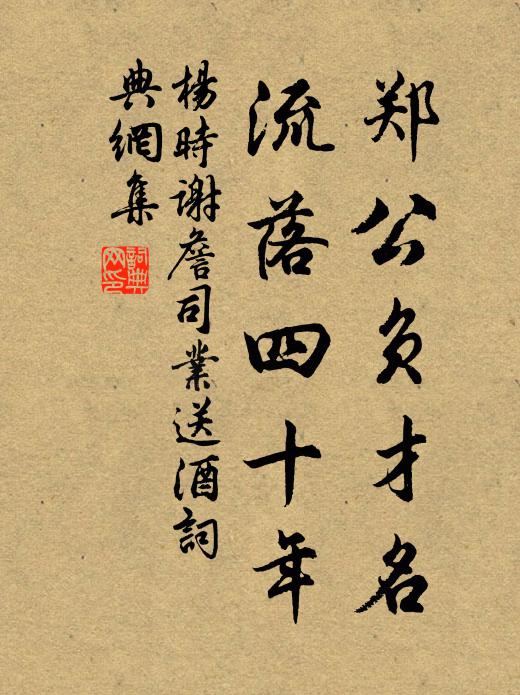 郑公负才名
流落四十年
楊時謝詹司業送酒詞
典網集
詞典网印